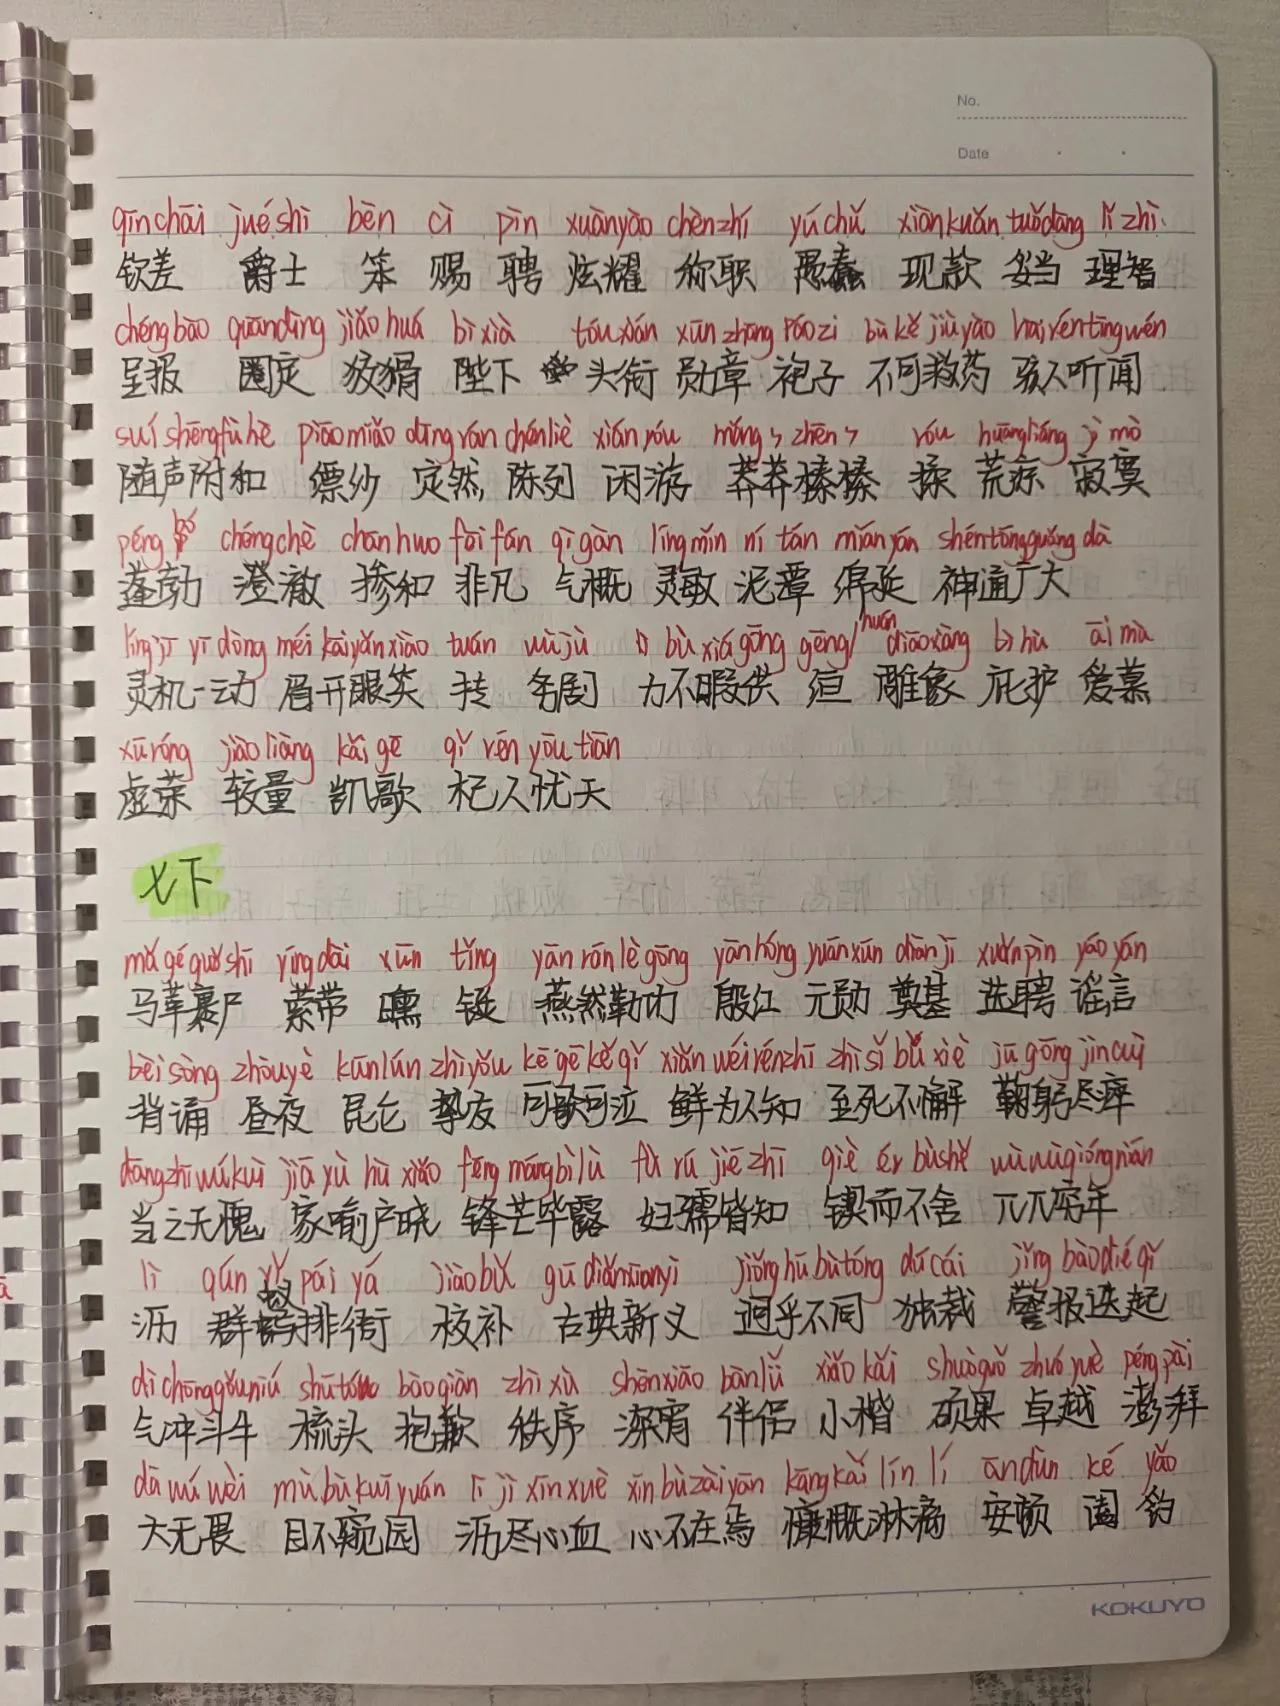 No.
Date
qīnchāi juéshì bèn cì pìn xuànyào chènzhí yúchǔn xiànkuǎn tuǒdàng lǐ zhì
钦差 爵士 笨 赐 聘 炫耀 称职 愚蠢 现款 妥当 理智
chéngbào quāndìng jiǎohuá bìxià tóuxián xūnzhāng páozi bùkějiùyào hàiréntīngwén
呈报 圈定 狡猾 陛下 头衔 勋章 袍子 不可救药 骇人听闻
suíshēngfùhè piāomiǎo dìngrán chénliè xiányóu mǎng zhēn róu huāngliáng jì mò
随声附和 缥缈 定然 陈列 闲游 莽莽榛榛 揉 荒凉 寂寞
péng bó chéngchè chānhuo fēifán qìgài língmǐn ní tán miányán shéntōngguǎngdà
蓬勃 澄澈 掺和 非凡 气概 灵敏 泥潭 绵延 神通广大
língjīyīdòng méikāiyǎnxiào tuán wùjù lì bùxiágōng gēng/huán diāoxiàng bì hù ài mù
灵机一动 眉开眼笑 抟 务剧 力不暇供 縆 雕象 庇护 爱慕
xūróng jiàoliàng kǎi gē qǐ rén yōu tiān
虚荣 较量 凯歌 杞人忧天
七下
mǎgéguǒshī yíngdài xūn tǐng yānránlègōng yānhóng yuánxūn diànjī xuǎnpìn yáoyán
马革裹尸 萦带 曛 铤 燕然勒功 殷红 元勋 奠基 选聘 谣言
bèisòng zhòuyè kūnlún zhìyǒu kēgēkěqì xiǎnwéirénzhī zhìsǐbùxiè jūgōngjìncuì
背诵 昼夜 昆仑 挚友 可歌可泣 鲜为人知 至死不懈 鞠躬尽瘁
dāngzhīwúkuì jiāyùhùxiǎo fēngmángbìlù fùrújiēzhī qièérbùshě wùwùqióngnián
当之无愧 家喻户晓 锋芒毕露 妇孺皆知 锲而不舍 兀兀穷年
lì qún yǐ pái yá jiàobǔ gǔdiǎnxīnyì jiǒnghūbùtóng dúcái jǐngbàodiéqǐ
沥 群蚁排衙 校补 古典新义 迥乎不同 独裁 警报迭起
qìchōngdǒuniú shūtóu bàoqiàn zhìxù shēnxiāo bànlǚ xiǎokǎi shuòguǒ zhuóyuè péngpài
气冲斗牛 梳头 抱歉 秩序 深宵 伴侣 小楷 硕果 卓越 澎拜
dàwúwèi mùbùkuīyuán lìjìnxīnxuè xīnbùzàiyān kāngkǎilínlí āndùn ké yào
大无畏 目不窥园 沥尽心血 心不在焉 慷慨淋漓 安顿 钥
KOKUYO